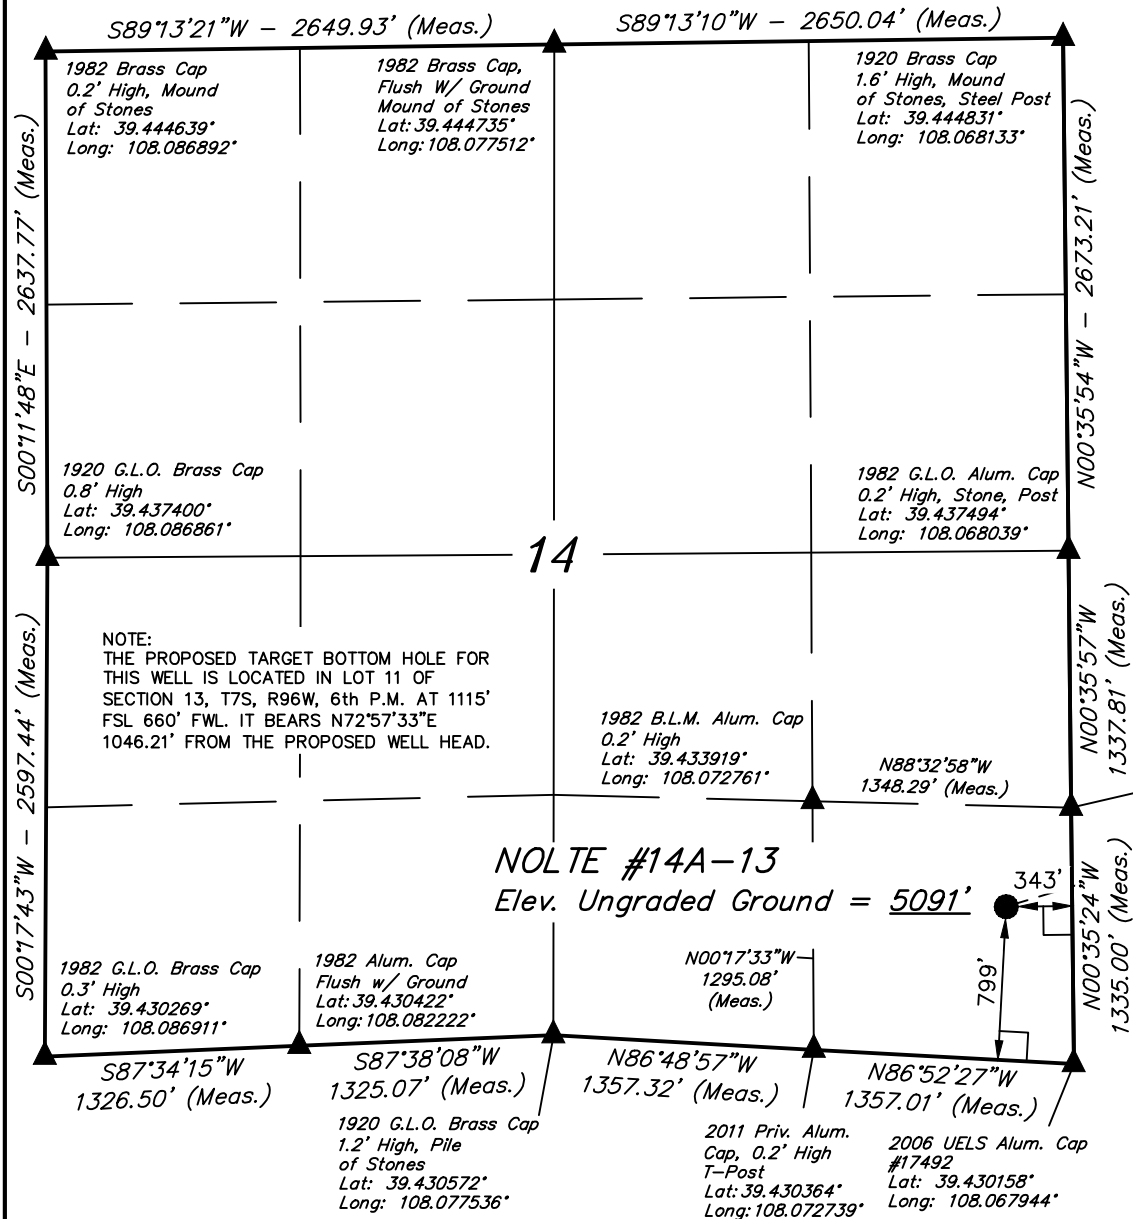 S89°13'21"W - 2649.93' (Meas.)
S89°13'10"W - 2650.04' (Meas.)
1982 Brass Cap
0.2' High, Mound
of Stones
Lat: 39.444639°
Long: 108.086892°
1982 Brass Cap,
Flush W/ Ground
Mound of Stones
Lat: 39.444735°
Long: 108.077512°
1920 Brass Cap
1.6' High, Mound
of Stones, Steel Post
Lat: 39.444831°
Long: 108.068133°
S00°11'48"E - 2637.77' (Meas.)
N00°35'54"W - 2673.21' (Meas.)
1920 G.L.O. Brass Cap
0.8' High
Lat: 39.437400°
Long: 108.086861°
1982 G.L.O. Alum. Cap
0.2' High, Stone, Post
Lat: 39.437494°
Long: 108.068039°
14
NOTE:
THE PROPOSED TARGET BOTTOM HOLE FOR
THIS WELL IS LOCATED IN LOT 11 OF
SECTION 13, T7S, R96W, 6th P.M. AT 1115'
FSL 660' FWL. IT BEARS N72°57'33"E
1046.21' FROM THE PROPOSED WELL HEAD.
S00°17'43"W - 2597.44' (Meas.)
N00°35'57"W
1337.81' (Meas.)
1982 B.L.M. Alum. Cap
0.2' High
Lat: 39.433919°
Long: 108.072761°
N88°32'58"W
1348.29' (Meas.)
NOLTE #14A-13
Elev. Ungraded Ground = 5091'
343'
799'
N00°35'24"W
1335.00' (Meas.)
N00°17'33"W
1295.08'
(Meas.)
1982 G.L.O. Brass Cap
0.3' High
Lat: 39.430269°
Long: 108.086911°
1982 Alum. Cap
Flush w/ Ground
Lat: 39.430422°
Long: 108.082222°
S87°34'15"W
1326.50' (Meas.)
S87°38'08"W
1325.07' (Meas.)
N86°48'57"W
1357.32' (Meas.)
N86°52'27"W
1357.01' (Meas.)
1920 G.L.O. Brass Cap
1.2' High, Pile
of Stones
Lat: 39.430572°
Long: 108.077536°
2011 Priv. Alum.
Cap, 0.2' High
T-Post
Lat: 39.430364°
Long: 108.072739°
2006 UELS Alum. Cap
#17492
Lat: 39.430158°
Long: 108.067944°